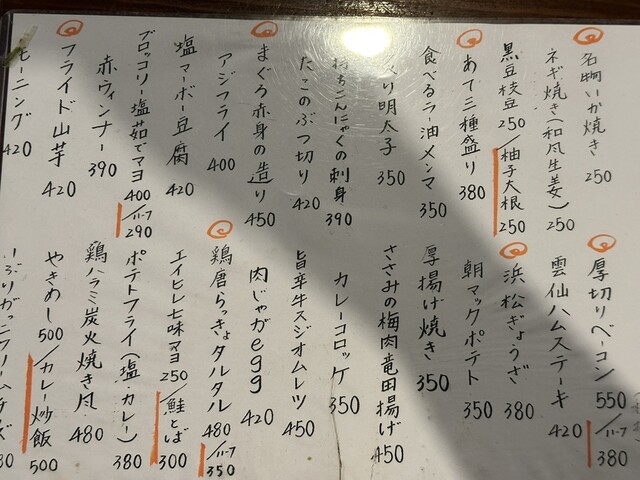 名物いか焼き 250
ネギ焼き(和風生姜) 250
黒豆枝豆 250/柚子大根 250
あて三種盛り 380
食べるラー油メンマ 350
り明太子 350
こんにゃくの刺身 390
たこのぶつ切り 420
まぐろ赤身の造り 450
アジフライ 400
塩マーボー豆腐 420
ブロッコリー塩茹でマヨ 400/ハーフ290
赤ウィンナー 390
フライド山芋 420
モーニング 420
厚切りベーコン 550/ハーフ380
雲仙ハムステーキ 420
浜松ぎょうざ 380
朝マックポテト 350
厚揚げ焼き 350
ささみの梅肉竜田揚げ 450
カレーコロッケ 350
旨辛牛スジオムレツ 450
肉じゃがegg 420
鶏唐らっきょタルタル 480/ハーフ350
エイヒレ七味マヨ 250/鮭とば 300
ポテトフライ(塩、カレー) 380
鶏ハラミ炭火焼き風 480
やきめし 500/カレー炒飯 500
いぶりがっこ